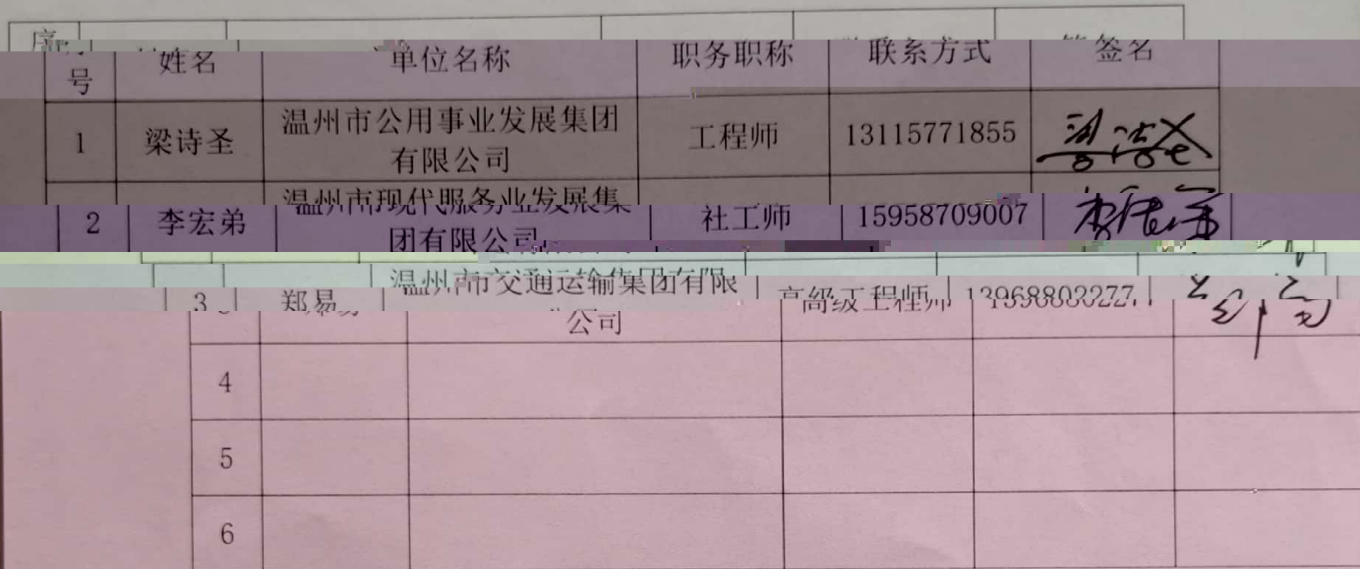 序号 姓名 单位名称 职务职称 联系方式 签名
1 梁诗圣 温州市公用事业发展集团 工程师 13115771855
有限公司
2 李宏弟 温州市现代服务业发展集 社工师 15958709007
团有限公司
3 郑易 温州市交通运输集团有限 高级工程师
公司
4
5
6